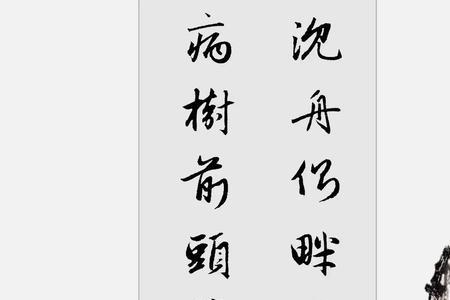 沉舟側畔
病樹前頭